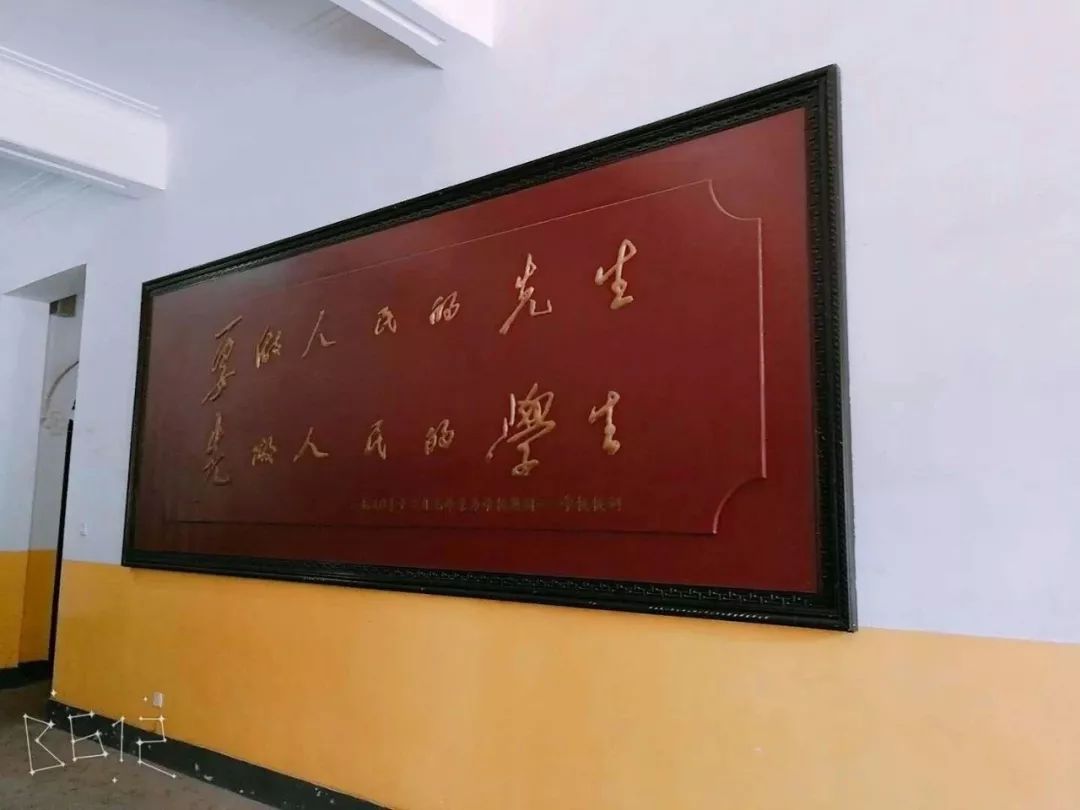 要做人民的先生
先做人民的學生
B612